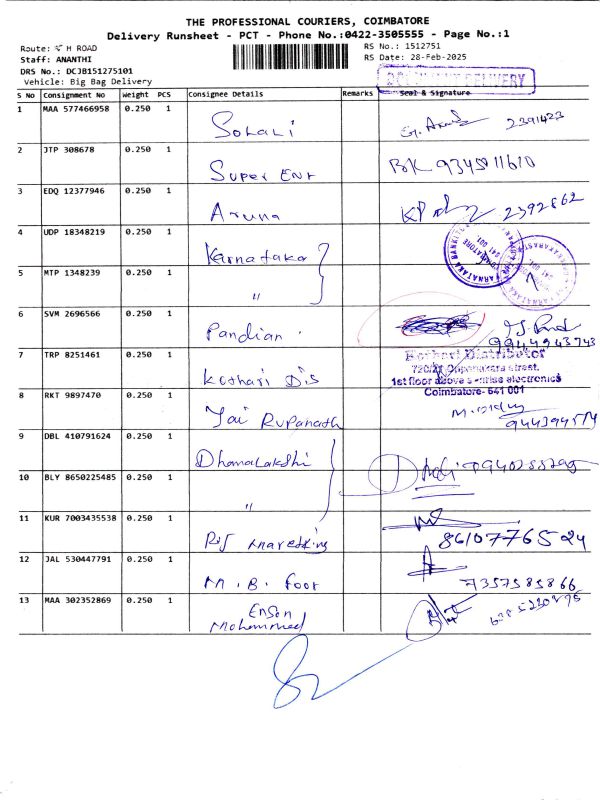 THE PROFESSIONAL COURIERS, COIMBATORE
Delivery Runsheet - PCT - Phone No.:0422-3505555 - Page No.:1
Route: H ROAD
RS No.: 1512751
Staff: ANANTHI
RS Date: 28-Feb-2025
DRS No.: DCJB151275101
Vehicle: Big Bag Delivery
DELIVERY
S No Consignment No Weight PCS Consignee Details Remarks Seal & Signature
1 MAA 577466958 0.250 1 2391423
2 JTP 308678 0.250 1 Super Ent BK
3 EDQ 12377946 0.250 1 Aruna KP 2392862
4 UDP 18348219 0.250 1 Karnataka
5 MTP 1348239 0.250 1 "
6 SVM 2696566 0.250 1 Pandian 9944943743
7 TRP 8251461 0.250 1 Kothari Dis
Kothari Distributor
1st floor above electronics
Coimbatore- 641 001
8 RKT 9897470 0.250 1 Jai Rupanath
9 DBL 410791624 0.250 1
10 BLY 8650225485 0.250 1 "
11 KUR 7003435538 0.250 1 8610776524
12 JAL 530447791 0.250 1 M. B. Foot 7357585866
13 MAA 302352869 0.250 1 Mohammed